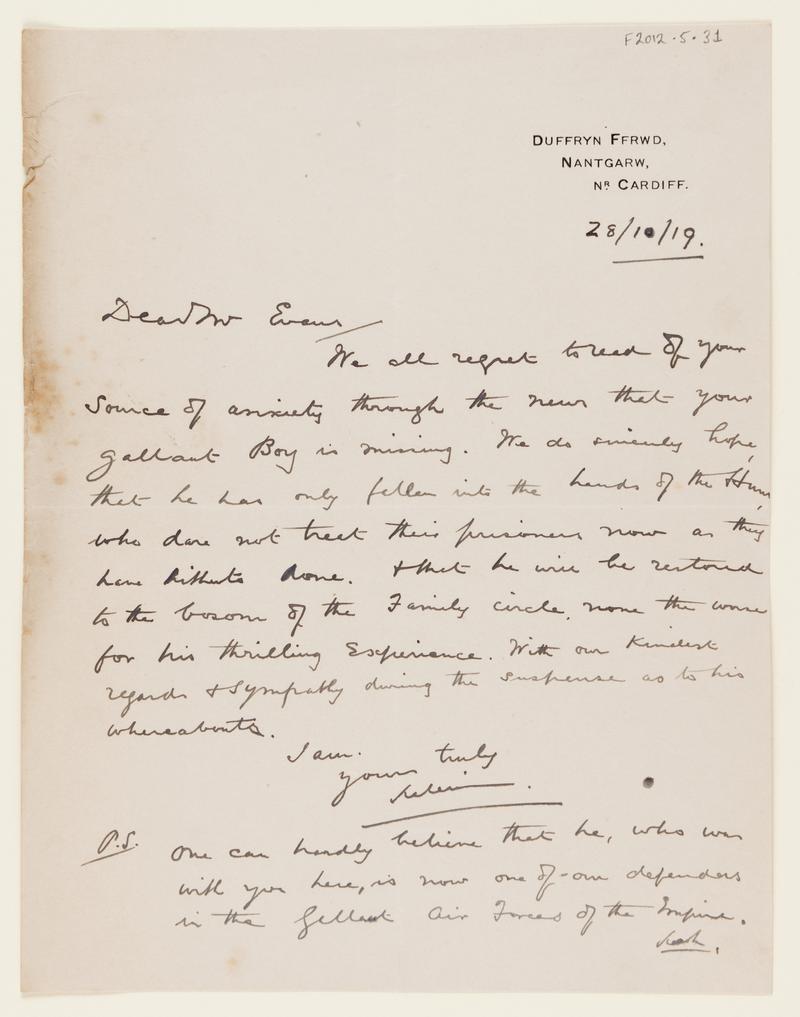 F2012.5.31
DUFFRYN FFRWD,
NANTGARW,
NR CARDIFF.
28/10/19.
Dear Mr Evans
We all regret to read of your
source of anxiety through the news that your
gallant Boy is missing. We do sincerely hope,
that he has only fallen into the hands of the Hun,
who dare not treat their prisoners now as they
have hitherto done. & that he will be restored
to the bosom of the Family circle, none the worse
for his thrilling Experience. With our Kindest
regards & Sympathy during the suspense as to his
whereabouts.
I am.
yours truly
P.S. One can hardly believe that he, who was
with you here, is now one of our defenders
in the Gallant Air Forces of the Empire.